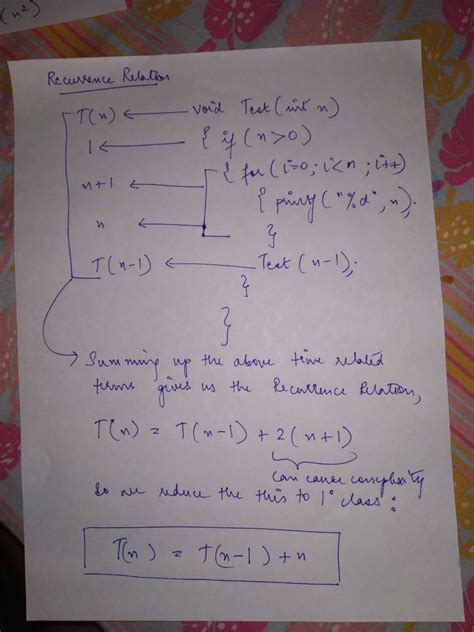 (n²)
Recurrence Relation
T(n) ← void Test(int n)
1 ← { if (n>0)
n+1 ← { for (i=0; i<n; i++)
{ printf("%d", n);
n ← }
T(n-1) ← Test (n-1);
}
}
→ Summing up the above time related
terms gives us the Recurrence Relation,
T(n) = T(n-1) + 2(n+1)
can cause complexity
So we reduce the this to 1° class:
T(n) = T(n-1) + n